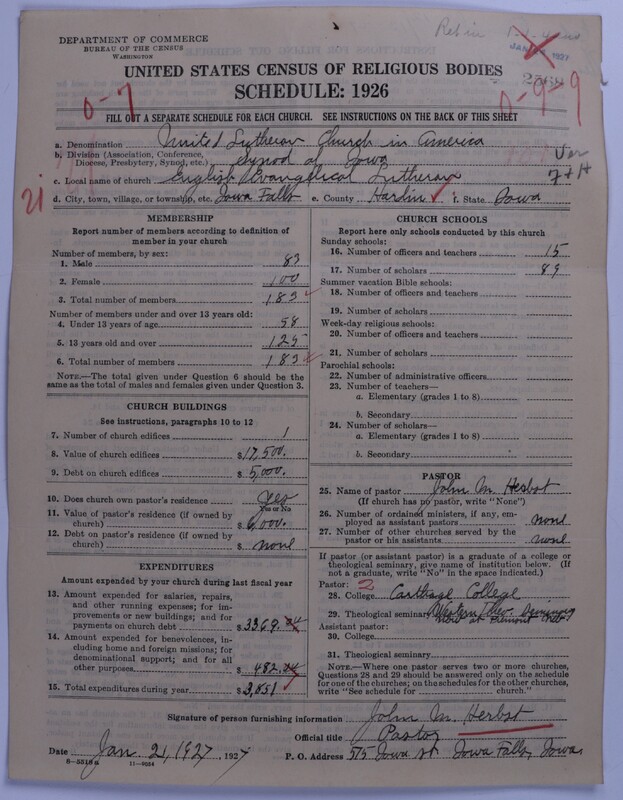 DEPARTMENT OF COMMERCE
BUREAU OF THE CENSUS
WASHINGTON
JAN 1927
UNITED STATES CENSUS OF RELIGIOUS BODIES
SCHEDULE: 1926
0-7
0-9-9
FILL OUT A SEPARATE SCHEDULE FOR EACH CHURCH. SEE INSTRUCTIONS ON THE BACK OF THIS SHEET
a. Denomination United Lutheran Church in America
b. Division (Association, Conference, Diocese, Presbytery, Synod, etc.) Synod of Iowa
Ver
7+H
c. Local name of church English Evangelical Lutheran
21
d. City, town, village, or township, etc. Iowa Falls e. County Hardin f. State Iowa
MEMBERSHIP
Report number of members according to definition of
member in your church
Number of members, by sex:
1. Male 83
2. Female 100
3. Total number of members 183
Number of members under and over 13 years old:
4. Under 13 years of age 58
5. 13 years old and over 125
6. Total number of members 183
NOTE.—The total given under Question 6 should be
same as the total of males and females given under Question 3.
CHURCH BUILDINGS
See instructions, paragraphs 10 to 12
7. Number of church edifices 1
8. Value of church edifices $17,500.
9. Debt on church edifices $5,000.
10. Does church own pastor's residence Yes
Yes or No
11. Value of pastor's residence (if owned by
church) $6,000.
12. Debt on pastor's residence (if owned by
church) $ none
EXPENDITURES
Amount expended by your church during last fiscal year
13. Amount expended for salaries, repairs,
and other running expenses; for im-
provements or new buildings; and for
payments on church debt $3369.
14. Amount expended for benevolences, in-
cluding home and foreign missions; for
denominational support; and for all
other purposes $482.
15. Total expenditures during year $3,851
CHURCH SCHOOLS
Report here only schools conducted by this church
Sunday schools:
16. Number of officers and teachers 15
17. Number of scholars 89
Summer vacation Bible schools:
18. Number of officers and teachers
19. Number of scholars
Week-day religious schools:
20. Number of officers and teachers
21. Number of scholars
Parochial schools:
22. Number of administrative officers
23. Number of teachers—
a. Elementary (grades 1 to 8)
b. Secondary
24. Number of scholars—
a. Elementary (grades 1 to 8)
b. Secondary
PASTOR
25. Name of pastor John M. Herbst
(If church has no pastor, write "None")
26. Number of ordained ministers, if any, em-
ployed as assistant pastors none
27. Number of other churches served by the
pastor or his assistants none
If pastor (or assistant pastor) is a graduate of a college or
theological seminary, give name of institution below. (If
not a graduate, write "No" in the space indicated.)
Pastor: 2
28. College Carthage College
29. Theological seminary Western Theo. Seminary
now at Fremont Neb
Assistant pastor:
30. College
31. Theological seminary
NOTE.—Where one pastor serves two or more churches,
Questions 28 and 29 should be answered only on the schedule
for one of the churches; on the schedules for the other churches,
write "See schedule for church."
Signature of person furnishing information John M. Herbst
Official title Pastor
Date Jan 21, 1927 1927 P. O. Address 515 Iowa st Iowa Falls, Iowa
8-5518a 11-9024